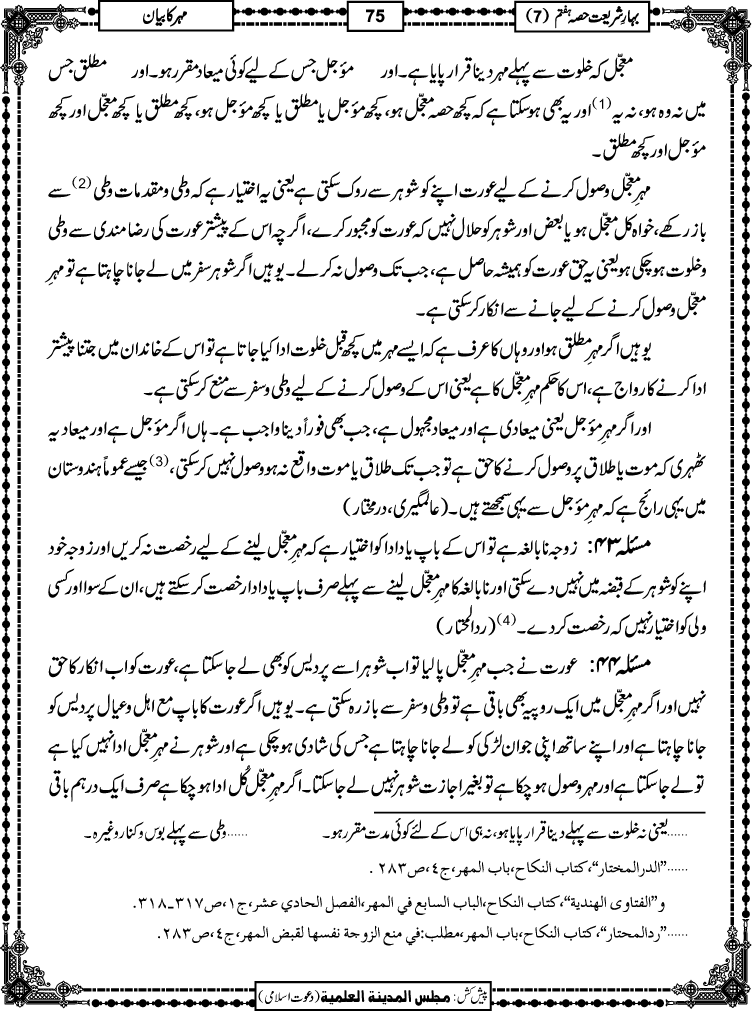 بہارِ شریعت حصہ ہفتم (7)
75
مہر کا بیان
معجّل کہ خلوت سے پہلے مہر دینا قرار پایا ہے۔ اور مؤجل جس کے لیے کوئی میعاد مقرر ہو۔ اور مطلق جس
میں نہ وہ ہو، نہ یہ (1) اور یہ بھی ہوسکتا ہے کہ کچھ حصہ معجّل ہو، کچھ مؤجل یا مطلق یا کچھ مؤجل ہو، کچھ مطلق یا کچھ معجّل اور کچھ
مؤجل اور کچھ مطلق۔
مہرِ معجّل وصول کرنے کے لیے عورت اپنے کو شوہر سے روک سکتی ہے یعنی یہ اختیار ہے کہ وطی و مقدمات وطی (2) سے
باز رکھے، خواہ کل معجّل ہو یا بعض اور شوہر کو حلال نہیں کہ عورت کو مجبور کرے، اگرچہ اس کے پیشتر عورت کی رضا مندی سے وطی
و خلوت ہوچکی ہو یعنی یہ حق عورت کو ہمیشہ حاصل ہے، جب تک وصول نہ کرلے۔ یوہیں اگر شوہر سفر میں لے جانا چاہتا ہے تو مہرِ
معجّل وصول کرنے کے لیے جانے سے انکار کرسکتی ہے۔
یوہیں اگر مہرِ مطلق ہو اور وہاں کا عرف ہے کہ ایسے مہر میں کچھ قبل خلوت ادا کیا جاتا ہے تو اس کے خاندان میں جتنا پیشتر
ادا کرنے کا رواج ہے، اس کا حکم مہرِ معجّل کا ہے یعنی اس کے وصول کرنے کے لیے وطی و سفر سے منع کرسکتی ہے۔
اور اگر مہرِ مؤجل یعنی میعادی ہے اور میعاد مجہول ہے، جب بھی فوراً دینا واجب ہے۔ ہاں اگر مؤجل ہے اور میعاد یہ
ٹھہری کہ موت یا طلاق پر وصول کرنے کا حق ہے تو جب تک طلاق یا موت واقع نہ ہو وصول نہیں کرسکتی، (3) جیسے عموماً ہندوستان
میں یہی رائج ہے کہ مہرِ مؤجل سے یہی سمجھتے ہیں۔ (عالمگیری، درمختار)
مسئلہ ۴۳: زوجہ نابالغہ ہے تو اس کے باپ یا دادا کو اختیار ہے کہ مہرِ معجّل لینے کے لیے رخصت نہ کریں اور زوجہ خود
اپنے کو شوہر کے قبضہ میں نہیں دے سکتی اور نابالغہ کا مہرِ معجّل لینے سے پہلے صرف باپ یا دادا رخصت کرسکتے ہیں، ان کے سوا اور کسی
ولی کو اختیار نہیں کہ رخصت کردے۔ (4) (ردالمحتار)
مسئلہ ۴۴: عورت نے جب مہرِ معجّل پالیا تو اب شوہر اسے پردیس کو بھی لے جاسکتا ہے، عورت کو اب انکار کا حق
نہیں اور اگر مہرِ معجّل میں ایک روپیہ بھی باقی ہے تو وطی و سفر سے باز رہ سکتی ہے۔ یوہیں اگر عورت کا باپ مع اہل و عیال پردیس کو
جانا چاہتا ہے اور اپنے ساتھ اپنی جوان لڑکی کو لے جانا چاہتا ہے جس کی شادی ہوچکی ہے اور شوہر نے مہرِ معجّل ادا نہیں کیا ہے
تو لے جاسکتا ہے اور مہر وصول ہوچکا ہے تو بغیر اجازت شوہر نہیں لے جاسکتا۔ اگر مہرِ معجّل کُل ادا ہوچکا ہے صرف ایک درہم باقی
......یعنی نہ خلوت سے پہلے دینا قرار پایا ہو، نہ ہی اس کے لئے کوئی مدت مقرر ہو۔ ......وطی سے پہلے بوس و کنار وغیرہ۔
......"الدرالمختار"، كتاب النكاح، باب المهر، ج٤، ص٢٨٣.
و"الفتاوى الهندية"، كتاب النكاح، الباب السابع في المهر، الفصل الحادي عشر، ج١، ص٣١٧-٣١٨.
......"ردالمحتار"، كتاب النكاح، باب المهر، مطلب: في منع الزوجة نفسها لقبض المهر، ج٤، ص٢٨٣.
پیش کش: مجلس المدينة العلمية (دعوت اسلامی)